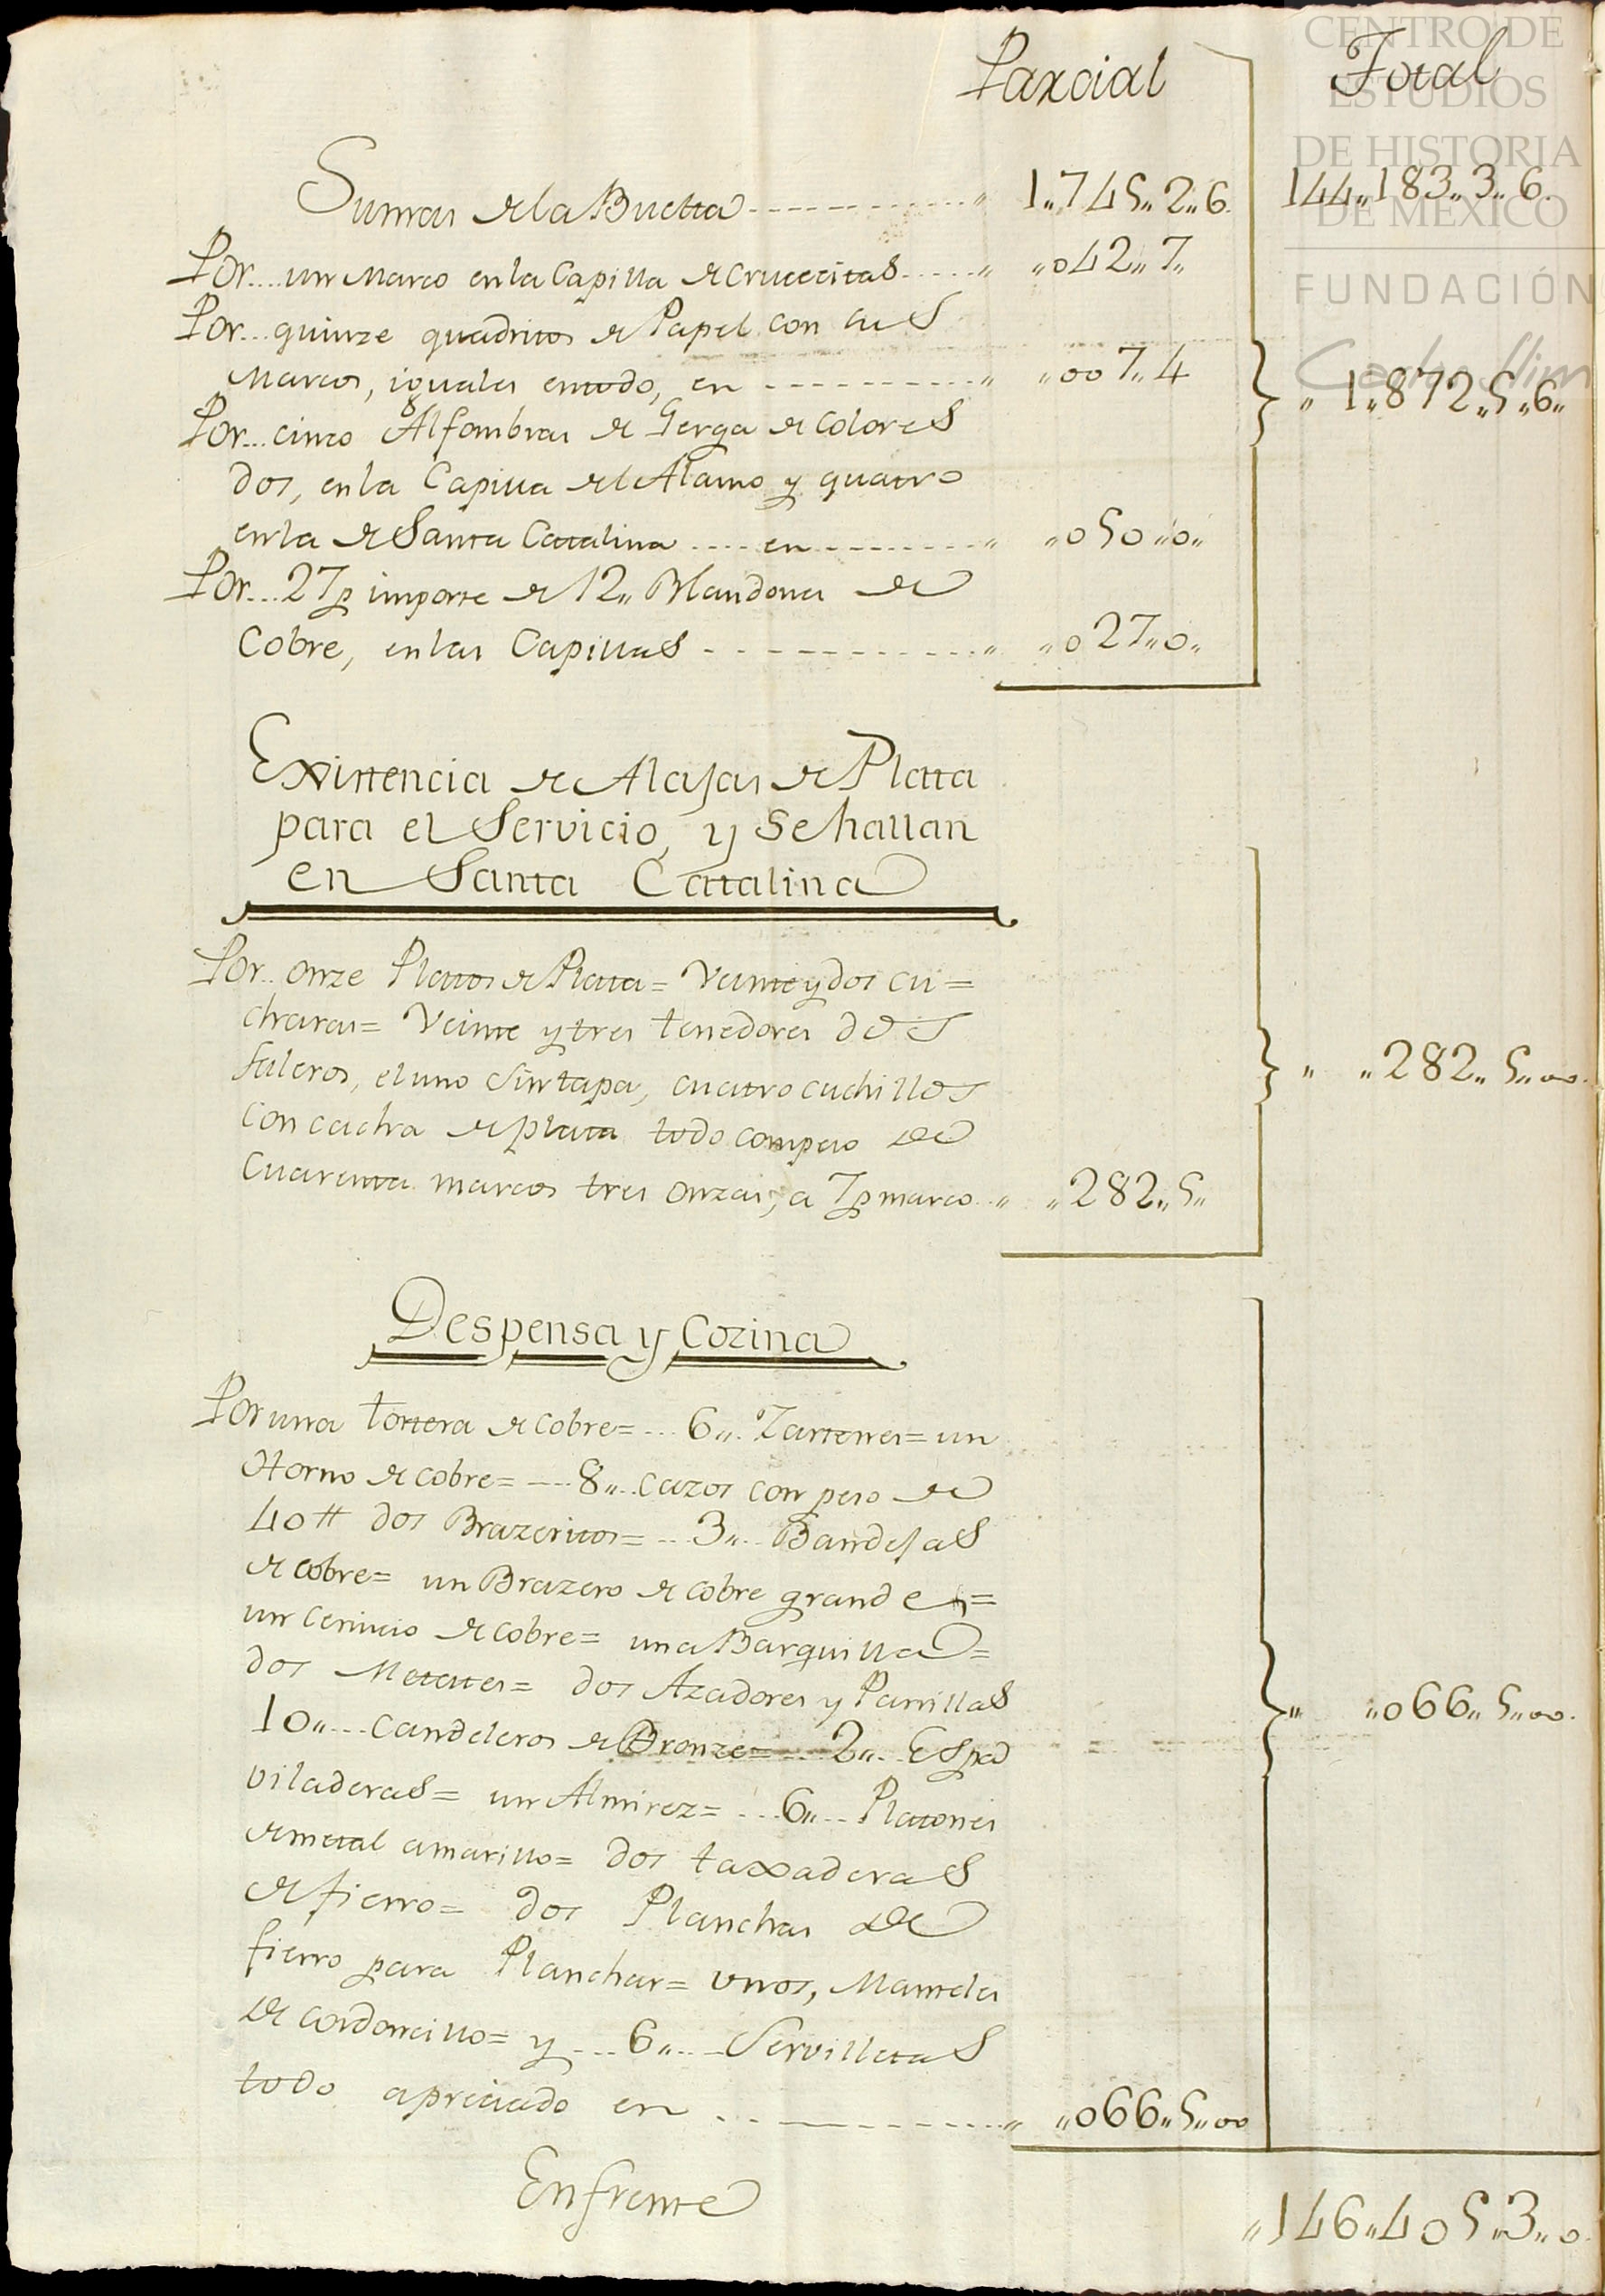 CENTRO DE
ESTUDIOS
DE HISTORIA
DE MEXICO
FUNDACIÓN
Carlos Slim
Parcial Total
Sumas de la Buelta ------------ „ 1„745„2„6. 144„183„3„6.
Por.... un Marco en la Capilla de Crucecitas ..... „ „042„7„
Por... quinze quadritos de Papel con sus
Marcos, iguales en todo, en ----------- „ „007„4 „ 1„872„5„6„
Por... cinco Alfombras de Gerga de colores
dos, en la Capilla del Alamo y quatro
en la de Santa Catalina .... en --------- „ „050„0„
Por... 27p importe de 12„ Blandones de
Cobre, en las Capillas ------------ „ „027„0„
Existencia de Alajas de Plata
para el Servicio, y se hallan
en Santa Catalina
Por.. onze Platos de Plata = Veinte y dos cu=
charas = Veinte y tres tenedores dos
saleros, el uno sin tapa, cuatro cuchillos „ „282„5„00.
con cacha de plata todo con peso de
Cuarenta marcos tres onzas, a 7p marco.. „ „282„5„
Despensa y Cozina
Por una tortera de cobre = ... 6„. Zartenes = un
Horno de cobre = ---- 8„.. cazos con peso de
40 # dos Brazeritos = ... 3„.. Bandejas
de cobre = un Brazero de cobre grande =
un de cobre = una Barquilla =
dos Metates = dos Azadores y Parrillas
10„... Candeleros de Bronze = ... 2„.. Espa „ „066„5„00.
viladeras = un Almirez = ...6„... Platones
de metal amarillo = dos taxaderas
de fierro = dos Planchas de
fierro para Planchar = unos, Manteles
de cordoncillo = y ...6„.... Servilletas
todo apreciado en ... ----------- „ „066„5„00
Enfrente „146„405„3„0.